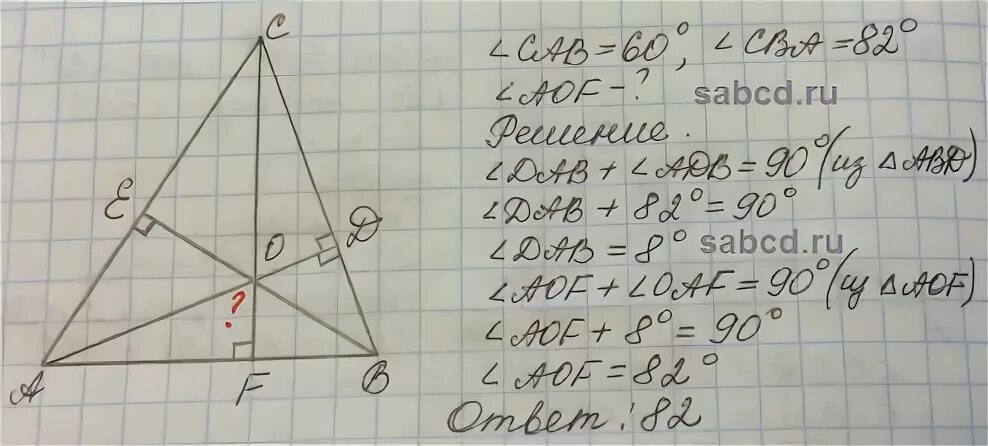 C
E
D
O
?
A
F
B
∠CAB = 60°, ∠CBA = 82°
∠AOF - ?
sabcd.ru
Решение.
∠DAB + ∠ADB = 90° (из △ABD)
∠DAB + 82° = 90°
∠DAB = 8°
sabcd.ru
∠AOF + ∠OAF = 90° (из △AOF)
∠AOF + 8° = 90°
∠AOF = 82°
Ответ: 82